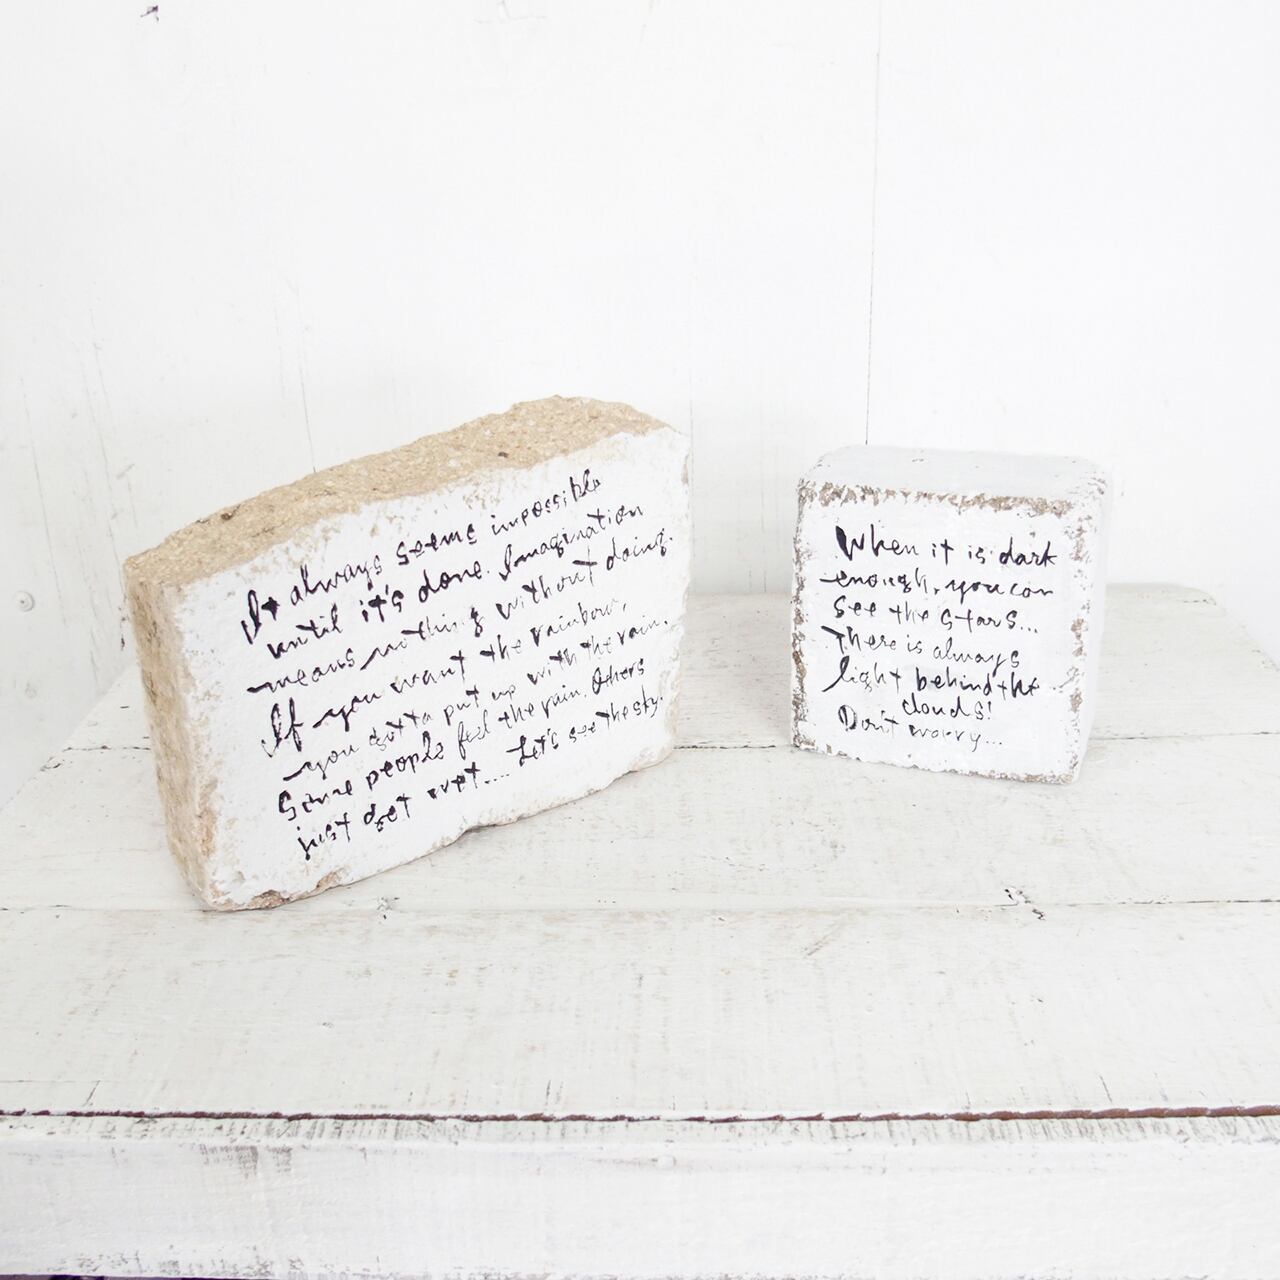 It always seems impossible
until it's done. Imagination
means nothing without doing.
If you want the rainbow,
you gotta put up with the rain.
Some people feel the rain. Others
just get wet.... Let's see the sky.
When it is dark
enough, you can
see the stars...
There is always
light behind the
clouds!
Don't worry...